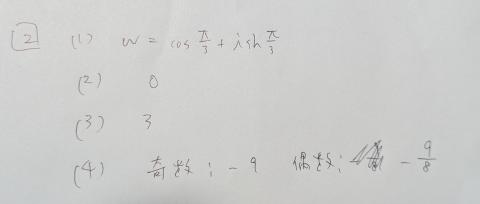 [2] (1) w = cos π/3 + i sin π/3
(2) 0
(3) 3
(4) 奇数: -9 偶数: -9/8